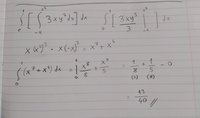 ∫₀¹ [ ∫₋ₓ^x² 3xy² dy ] dx ∫₀¹ [ 3xy³/3 |₋ₓ^x² ] dx
x(x²)³ - x(-x)³ = x⁷ + x⁴
∫₀¹ (x⁷ + x⁴) dx = | x⁸/8 + x⁵/5 |₀¹ = 1/8 + 1/5 - 0
(5) (8)
= 13/40 //